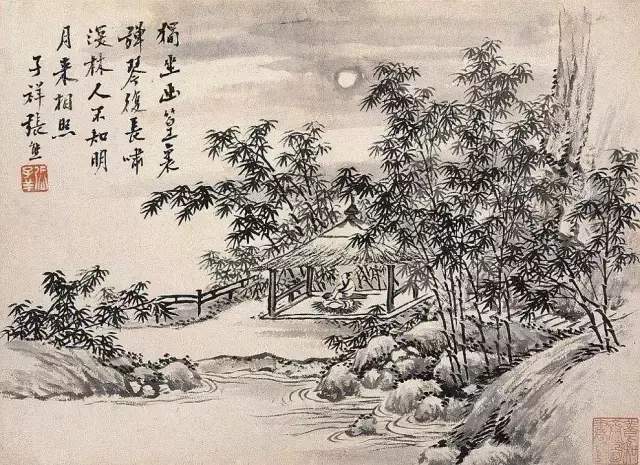 獨坐幽篁裏
彈琴復長嘯
深林人不知明
月來相照
子祥張熊